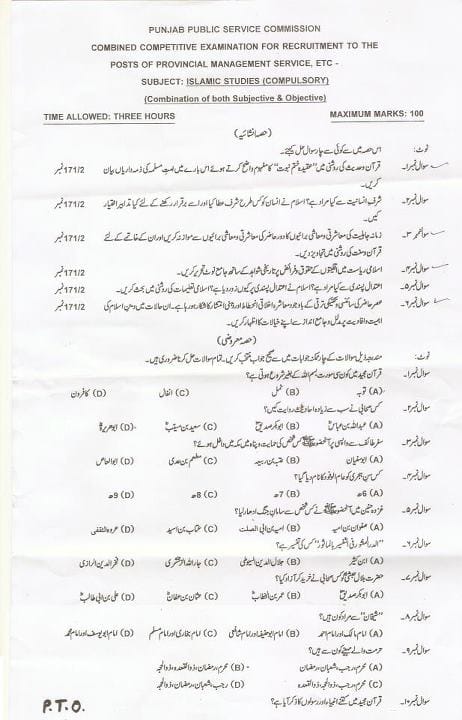 PUNJAB PUBLIC SERVICE COMMISSION
COMBINED COMPETITIVE EXAMINATION FOR RECRUITMENT TO THE
POSTS OF PROVINCIAL MANAGEMENT SERVICE, ETC -
SUBJECT: ISLAMIC STUDIES (COMPULSORY)
(Combination of both Subjective & Objective)
TIME ALLOWED: THREE HOURS MAXIMUM MARKS: 100
(حصہ انشائیہ)
نوٹ: اس حصہ میں سے کوئی سے چار سوال حل کیجئے۔
سوال نمبر۱۔ قرآن وحدیث کی روشنی میں "عقیدہ ختم نبوت" کا مفہوم واضح کرتے ہوئے اس بارے میں امتِ مسلمہ کی ذمہ داریاں بیان 171/2نمبر
کریں۔
سوال نمبر۲۔ شرف انسانیت سے کیا مراد ہے؟ اسلام نے انسان کو کس طرح شرف عطا کیا اور اسے برقرار رکھنے کے لئے کیا تدابیر اختیار 171/2نمبر
کیں۔
سوال نمبر ۳۔ زمانہ جاہلیت کی معاشرتی و معاشی برائیوں کا دور حاضر کی معاشرتی و معاشی برائیوں سے موازنہ کریں اور ان کے خاتمے کے لئے 171/2نمبر
قرآن وسنت کی روشنی میں تجاویز دیں۔
سوال نمبر۴۔ اسلامی ریاست میں اقلیتوں کے حقوق و فرائض پر تاریخی شواہد کے ساتھ جامع نوٹ تحریر کریں۔ 171/2نمبر
سوال نمبر۵۔ اعتدال پسندی سے کیا مراد ہے؟ اسلام نے اعتدال پسندی پر کیوں زور دیا ہے؟ اسلامی تعلیمات کی روشنی میں بحث کریں۔ 171/2نمبر
سوال نمبر۶۔ عصر حاضر کی سائنسی و تکنیکی ترقی کے باوجود معاشرہ اخلاقی انحطاط اور ذہنی انتشار کا شکار ہو رہا ہے۔ ان حالات میں دین اسلام کی 171/2نمبر
اہمیت و افادیت پر مدلل و جامع انداز سے اپنے خیالات کا اظہار کریں۔
(حصہ معروضی)
نوٹ: مندرجہ ذیل سوالات کے چار ممکنہ جوابات میں سے صحیح جواب منتخب کریں۔ تمام سوالات حل کرنا ضروری ہیں۔
سوال نمبر۱۔ قرآن مجید میں کون سی سورت بسم اللہ کے بغیر شروع ہوتی ہے؟
(A) توبہ (B) نمل (C) انفال (D) کافرون
سوال نمبر۲۔ کس صحابی نے سب سے زیادہ احادیث روایت کیں؟
(A) عبداللہ بن عباسؓ (B) ابوبکر صدیقؓ (C) سعید بن مسیبؒ (D) ابوھریرہؓ
سوال نمبر۳۔ سفر طائف سے واپسی پر آنحضورﷺ کس شخص کی حمایت و پناہ میں مکہ میں داخل ہوئے؟
(A) ابوسفیان (B) عتبہ بن ربیعہ (C) مطعم بن عدی (D) ابوالعاص
سوال نمبر۴۔ کس سن ہجری کو عام الوفود کا نام دیا گیا؟
(A) 6ھ (B) 7ھ (C) 8ھ (D) 9ھ
سوال نمبر۵۔ غزوہ حنین میں آنحضورﷺ نے کس شخص سے سامان جنگ ادھار لیا؟
(A) صفوان بن امیہ (B) امیہ بن ابی الصلت (C) عتاب بن اسید (D) عروہ الثقفی
سوال نمبر۶۔ "الدر المنثور فی التفسیر بالماثور" کس کی تفسیر ہے؟
(A) ابن کثیر (B) جلال الدین السیوطی (C) جار اللہ الزمخشری (D) فخر الدین الرازی
سوال نمبر۷۔ حضرت بلال حبشیؓ کو کس صحابی نے خرید کر آزاد کیا؟
(A) ابوبکر صدیقؓ (B) عمر بن الخطابؓ (C) عثمان بن عفانؓ (D) علی بن ابی طالبؓ
سوال نمبر۸۔ "شیخان" سے مراد کون ہیں؟
(A) امام مالک اور امام احمد (B) امام ابوحنیفہ اور امام شافعی (C) امام بخاری اور امام مسلم (D) امام ابو یوسف اور امام محمد
سوال نمبر۹۔ حرمت والے مہینے کون سے ہیں؟
(A) محرم، رجب، شعبان، رمضان (B) محرم، رمضان، ذوالقعدہ، ذوالحجہ
(C) محرم، رجب، ذوالقعدہ، ذوالحجہ (D) رجب، شعبان، رمضان، ذوالحجہ
سوال نمبر۱۰۔ قرآن مجید میں کتنے انبیاء اور رسولوں کا ذکر آیا ہے؟
P.T.O.